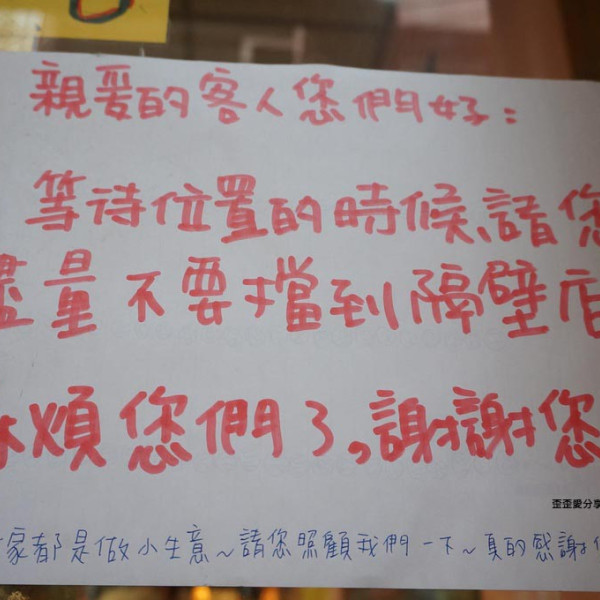 親愛的客人您們好：
等待位置的時候，請您
盡量不要擋到隔壁店
煩您們了，謝謝您
歪歪愛分享
家都是做小生意～請您照顧我們一下～真的感謝